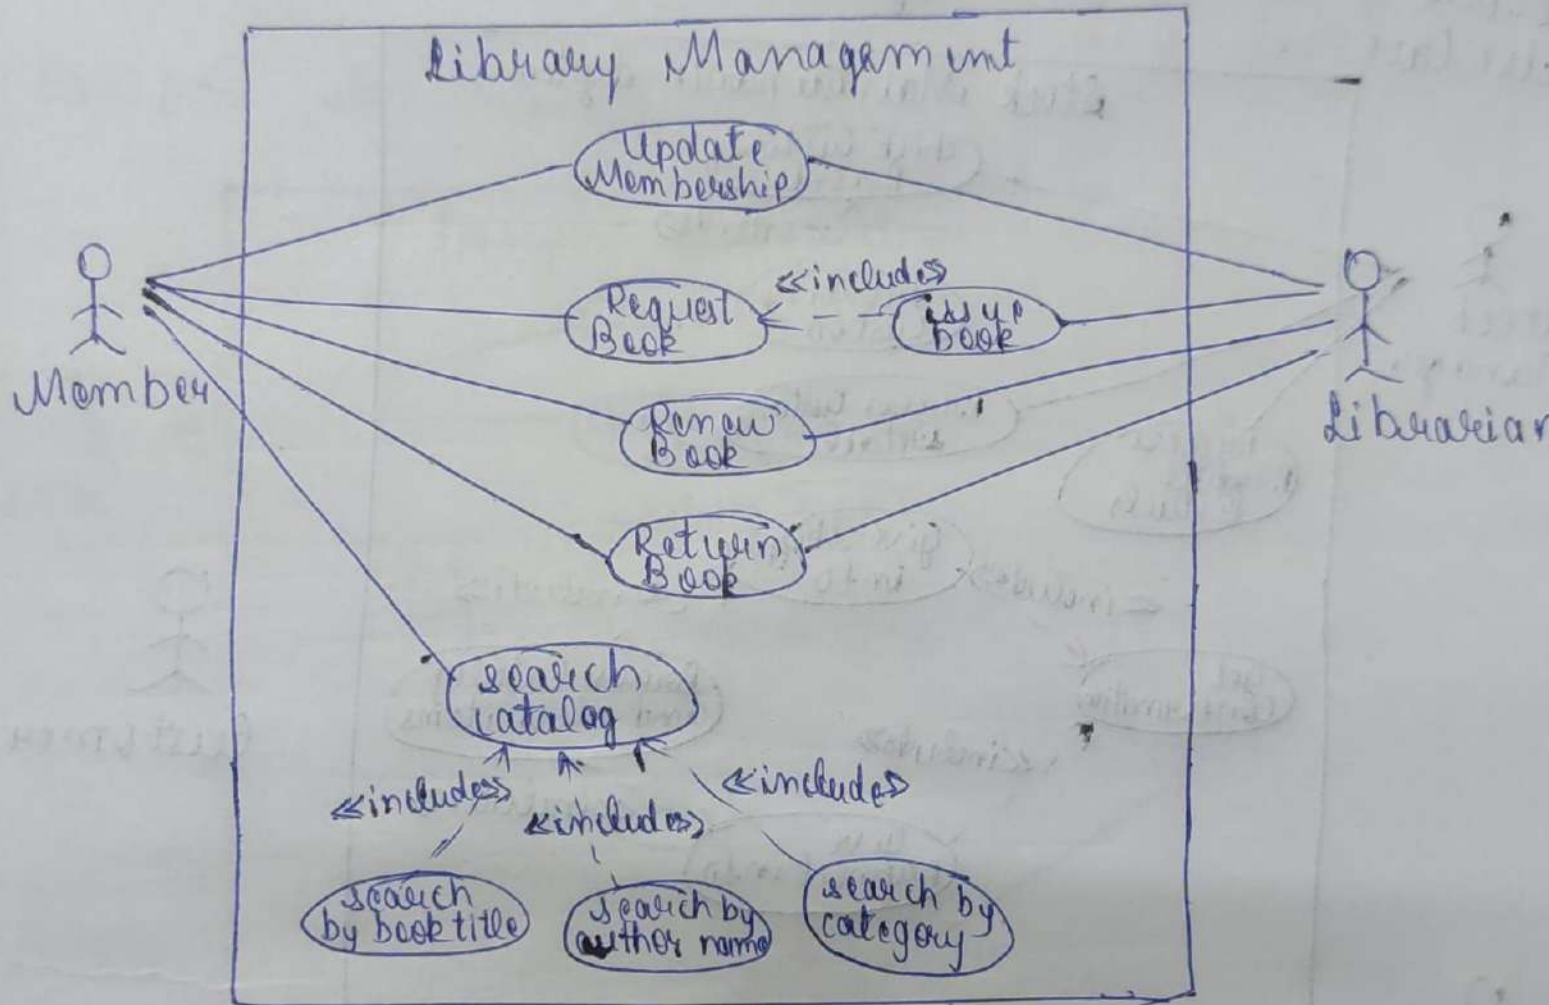 Library Managemint
Update
Membership
Member
Request
Book
<<includes>>
issue
book
Librarian
Renew
Book
Return
Book
search
catalog
<<includes>>
<<includes>>
<<includes>>
search
by book title
search by
author name
search by
category